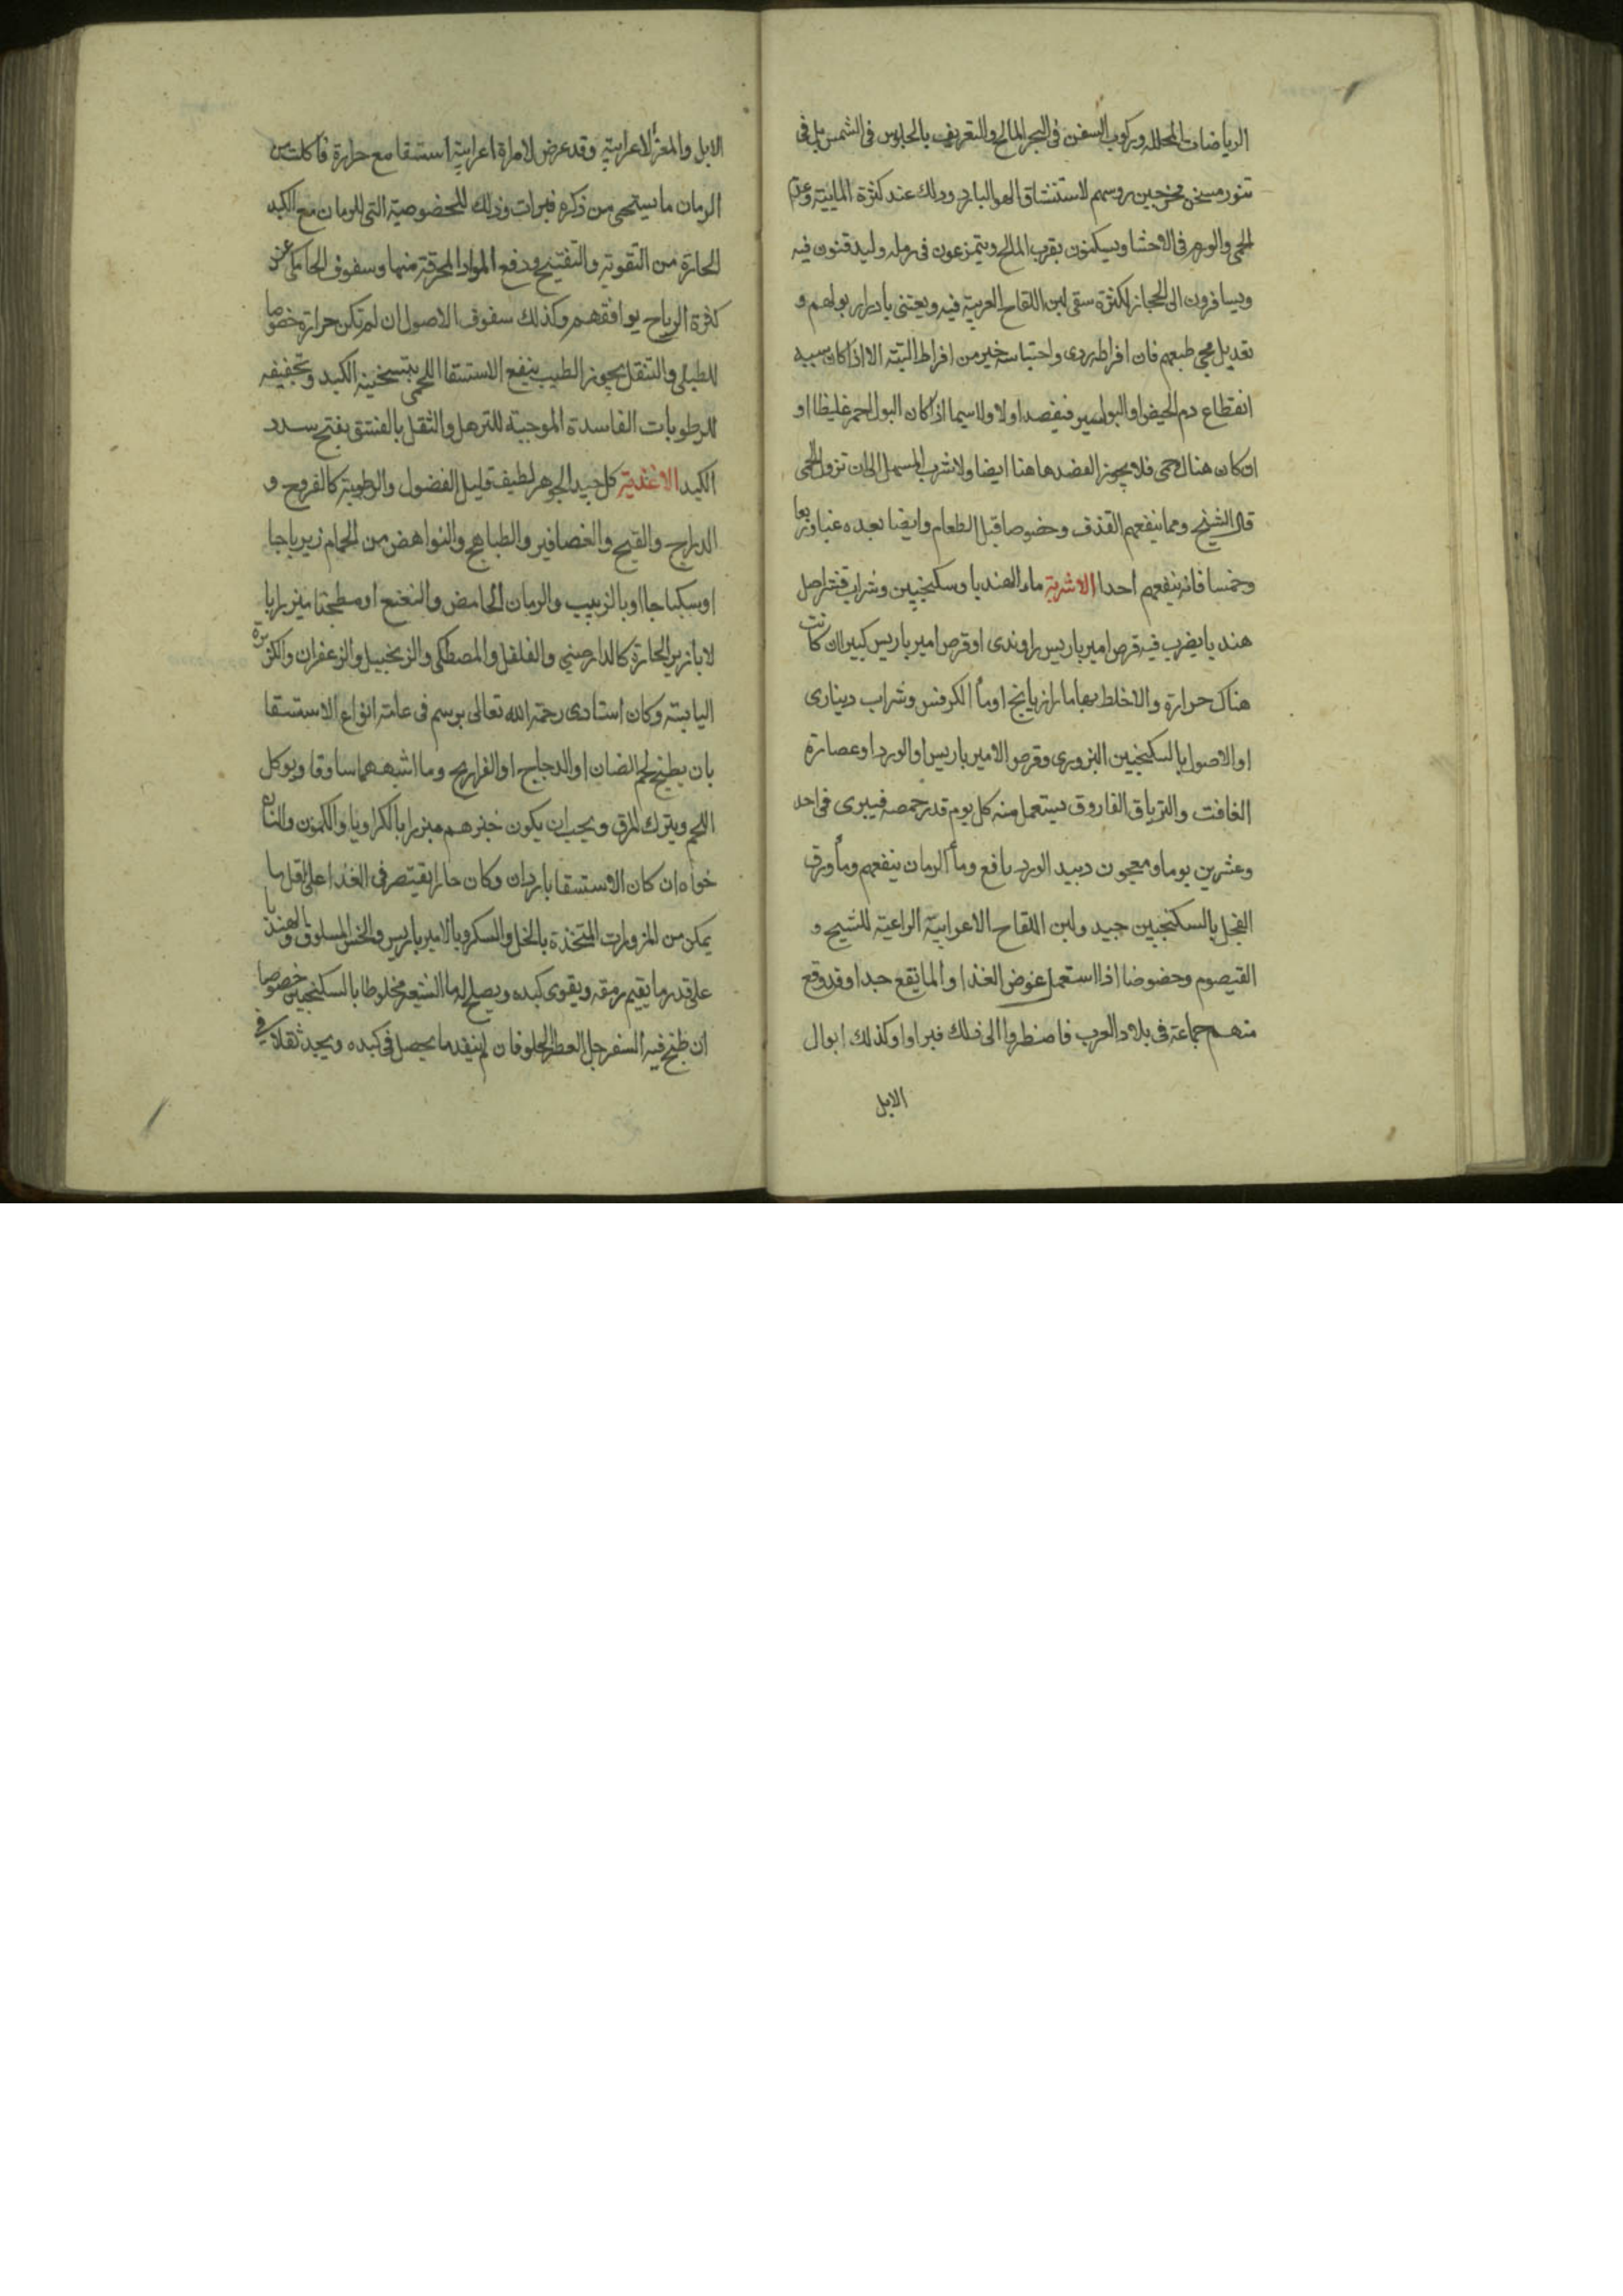 الرياضات المحلله وركوب السفن فى البحر المالح والتعريق بالجلوس فى الشمس بل فى
تنور مسخن مخرجين روسهم لاستنشاق الهوا البارد وذلك عند كثرة المايية وعدم
الحمى والورم فى الاحشا ويسكنون بقرب المالح ويتمزعون فى رمله وليدفنون فيه
ويسافرون الى الحجاز لكثرة سقى لبن اللقاح العربية فيه ويعتنى بادرار بولهم و
تعديل مجى طبعهم فان افراطه ردى واحتباسه خير من افراط البتة الا اذا كان سببه
انقطاع دم الحيض او البواسير فيفصد اولا ولا سيما اذا كان البول احمر غليظا او
ان كان هناك حمى فلا يجوز الفصد هاهنا ايضا ولا شرب المسهل الى ان تزول الحمى
قال الشيخ ومما ينفعهم القذف وخصوصا قبل الطعام وايضا بعده غبا وربعا
وخمسا فانه ينفعهم احدا الاشربة ماء الهندبا وسكنجبين وشراب قشر اصل
هندبا يضرب فيه قرص امير باريس راوندى او قرص امير باريس كبير ان كانت
هناك حرارة والا خلط بهاما رازيانج او ماء الكرفس وشراب دينارى
او الاصول بالسكنجبين البزورى وقرص الامير باريس او الورد او عصارة
الغافت والترياق الفاروق يستعمل منه كل يوم قدر حمصه فيبرى فى احد
وعشرين يوما ومعجون دبيد الورد نافع وماء الرمان ينفعهم وماء ورق
الفجل بالسكنجبين جيد ولبن اللقاح الاعرابية الراعية للشيح و
القيصوم وخصوصا اذا استعمل عوض الغذا والما نفع جدا وقد وقع
منهم جماعة فى بلاد العرب فاضطروا الى ذلك فبراوا وكذلك ابوال
الابل
الابل والمعز الاعرابية وقد عرض لامراة اعرابية استسقا مع حرارة فاكلت من
الرمان ما يستحى من ذكره فبرات وذلك للخصوصية التى للرمان مع الكبد
الحارة من التقوية والتفتيح ودفع المواد المحرقة منها وسفوف الحامل عن
كثرة الرياح يوافقهم وكذلك سفوف الاصول ان لم تكن حرارة خصوصا
للطبلى والتنقل بجوز الطيب ينفع الاستسقا اللحمى بتسخينه الكبد وتجفيفه
للرطوبات الفاسدة الموجبة للترهل والتقل بالفستق بفتح سدد
الكبد الاغذية كل جيد الجوهر لطيف قليل الفضول والرطوبة كالفروج و
الدراج والقبج والعصافير والطباهج والنواهض من الحمام زيرباجا
او سكباجا او بالزبيب والرمان الحامض والنعنع او مطجنا مبزرا با
لابازير الحارة كالدارصينى والفلفل والمصطكى والزنجبيل والزعفران والكزبرة
اليابسة وكان استادى رحمة الله تعالى يرسم فى عامة انواع الاستسقا
بان يطبخ لحم الضان او الدجاج او الفراريج وما اشبههما ساوقا ويوكل
اللحم ويترك المرق ويجب ان يكون خبزهم مبزرا بالكراويا والكمون والنا
خواه ان كان الاستسقا باردا وان كان حارا يقتصر فى الغذا على اقل ما
يمكن من المزورات المتخذة بالخل والسكر وبالامير باريس والخس المسلوق والهندبا
على قدر ما يقيم رمقه ويقوى كبده ويصلح له ماء الشعير مخلوطا بالسكنجبين خصوصا
ان طبخ فيه السفرجل العطر الحلو فان لم ينفد ما يحصل فى كبده ويجد ثقلا فى